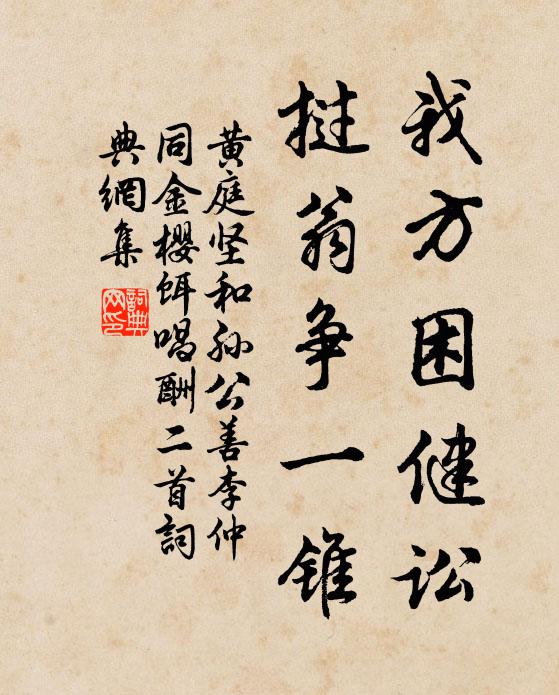 我方困健讼
挝翁争一锥
黄庭坚和孙公善李仲
同金樱饵唱酬二首詞
典網集
詞典网印